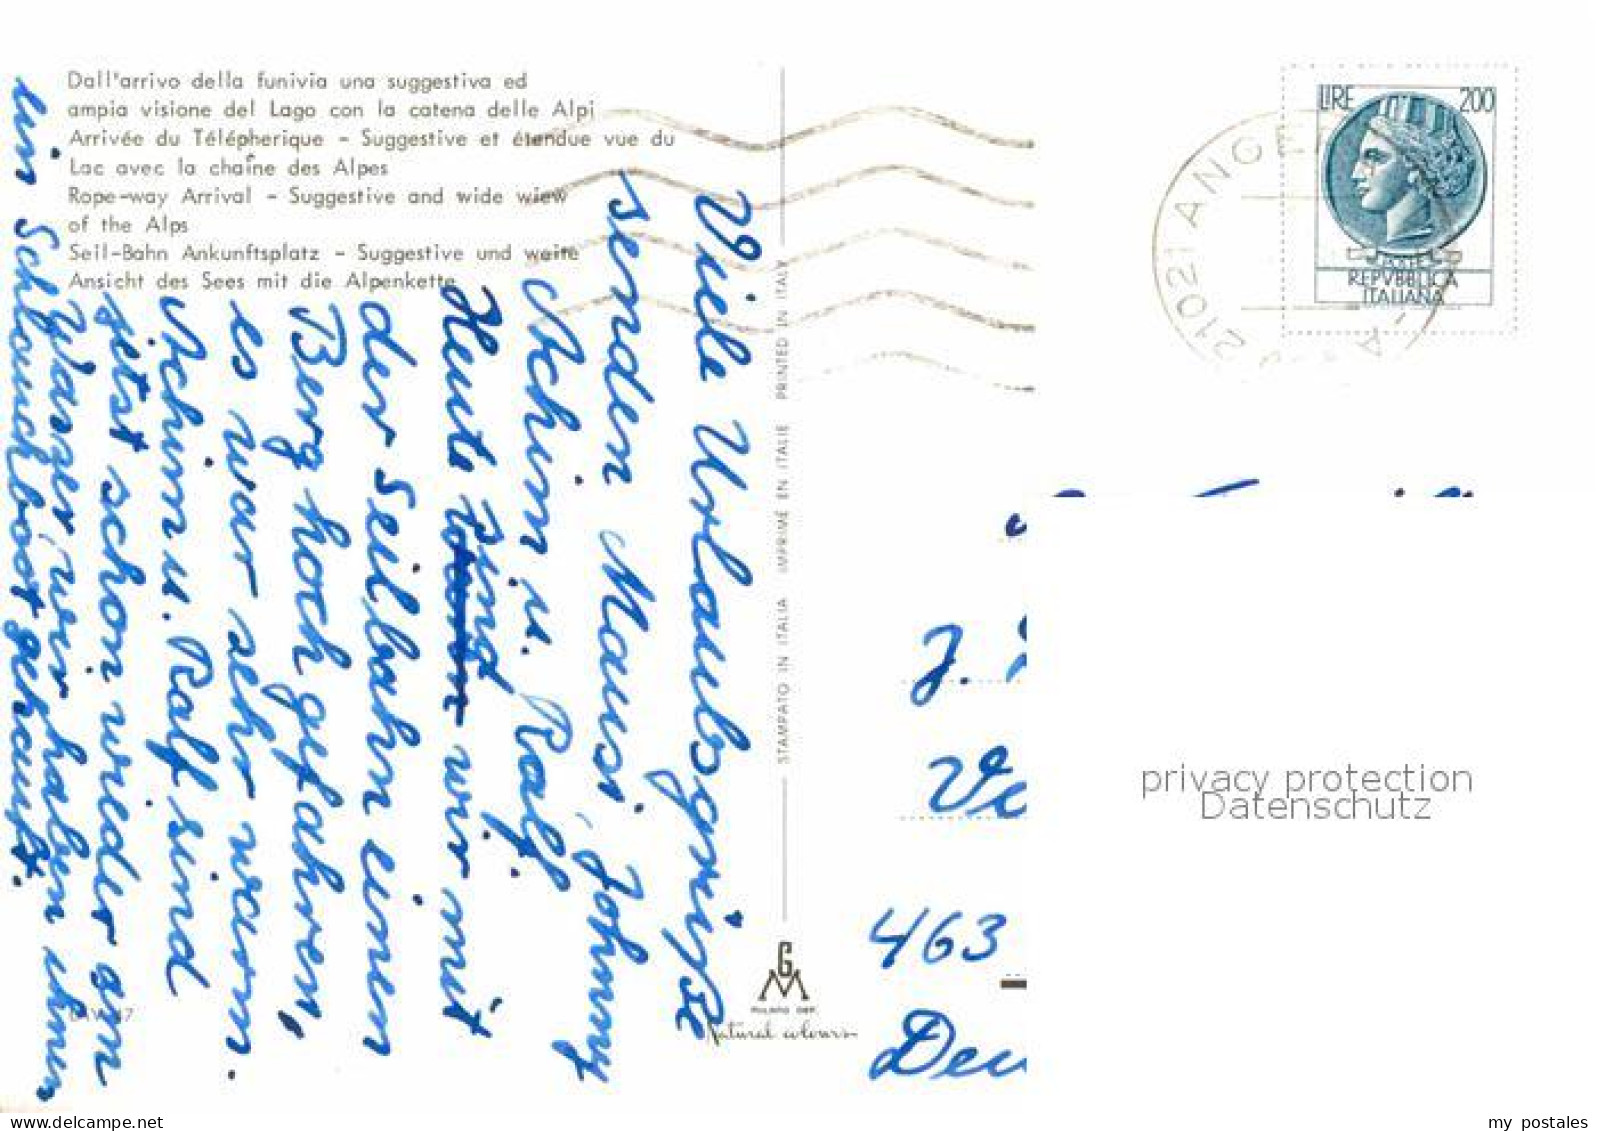 Dall'arrivo della funivia una suggestiva ed
ampia visione del Lago con la catena delle Alpi
Arrivée du Télépherique - Suggestive et étendue vue du
Lac avec la chaîne des Alpes
Rope-way Arrival - Suggestive and wide wiew
of the Alps
Seil-Bahn Ankunftsplatz - Suggestive und weite
Ansicht des Sees mit die Alpenkette
Viele Urlaubsgrüße
senden Mausi, Johnny
Achim u. Ralf.
Heute sind wir mit
der Seilbahn einen
Berg hoch gefahren,
es war sehr warm.
Achim u. Ralf sind
jetzt schon wieder am
Wasser, wir haben ihnen
ein Schlauchboot gekauft.
STAMPATO IN ITALIA IMPRIMÉ EN ITALIE PRINTED IN ITALY
G M
MILANO DEP.
Natural colours
LIRE 200
POSTE
REPVBBLICA
ITALIANA
21021 ANG
J.
463
Deu
privacy protection
Datenschutz
my postales